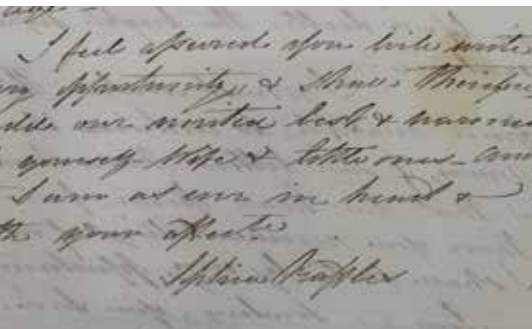 age -
I feel assured you will write
ry opportunity, & shall therefore
add our united best & warmest
yourself Wife & little ones - and
I am as ever in heart &
th your affecte
Sophia Raffles